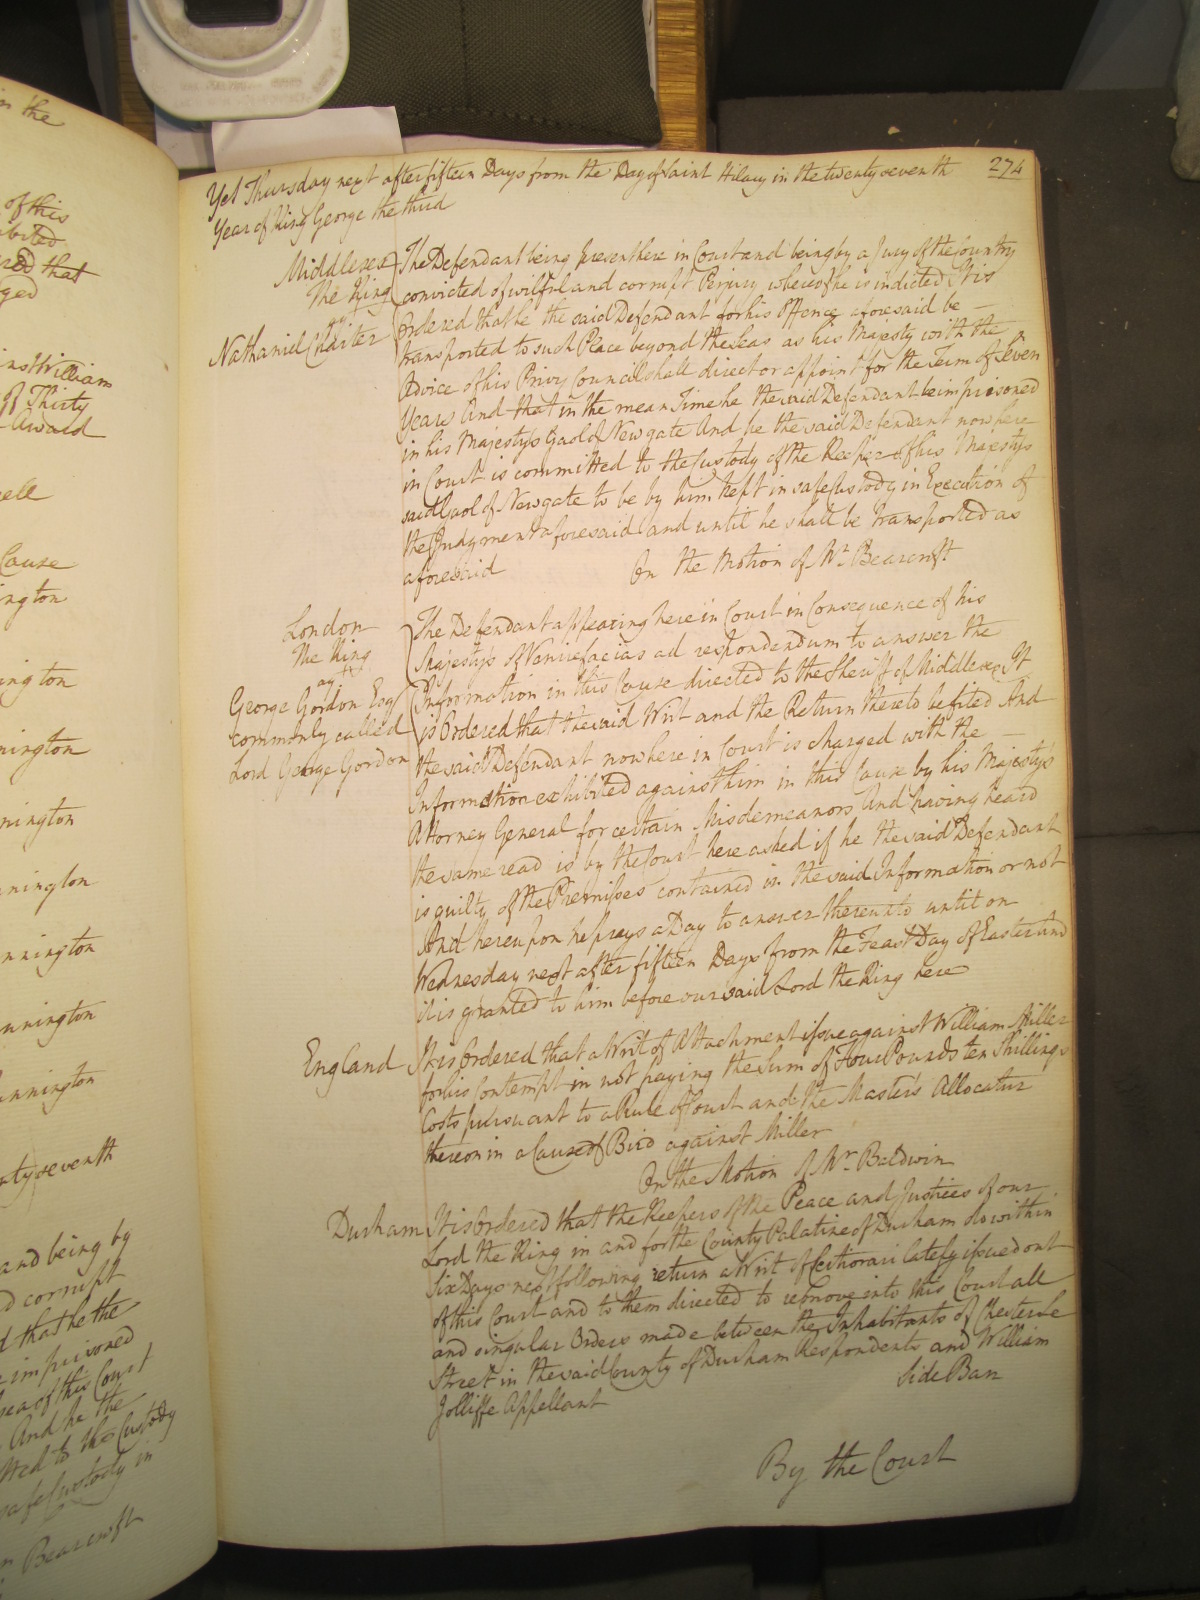 in the
of this
that
ged
William
Thirty
Award
Cause
ington
ington
nington
nington
nnington
nnington
nnington
nnington
and being by
d corrupt
d that he the
imprisoned
of this Court
And he the
tted to the Custody
safe Custody in
Bearcroft
Yet Thursday next after fifteen Days from the Day of Saint Hilary in the twenty seventh 274
Year of King George the third
Middlesex
The King
agt
Nathaniel Charter
The Defendant being present here in Court and being by a Jury of the Country
convicted of wilful and corrupt Perjury whereof he is indicted It is
Ordered that he the said Defendant for his Offence aforesaid be
transported to such Place beyond the Seas as his Majesty with the
Advice of his Privy Council shall direct or appoint for the Term of Seven
Years And that in the mean Time he the said Defendant be imprisoned
in his Majesty's Gaol of Newgate And he the said Defendant now here
in Court is committed to the Custody of the Keeper of his Majesty's
said Gaol of Newgate to be by him kept in safe Custody in Execution of
the Judgment aforesaid and until he shall be transported as
aforesaid On the Motion of Mr. Bearcroft
London
The King
agt
George Gordon Esqr
commonly called
Lord George Gordon
The Defendant appearing here in Court in Consequence of his
Majesty's Writ of Venire facias ad respondendum to answer the
Information in this Cause directed to the Sheriff of Middlesex It
is Ordered that the said Writ and the Return thereto be filed And
the said Defendant now here in Court is charged with the
Information exhibited against him in this Cause by his Majesty's
Attorney General for certain Misdemeanors And having heard
the same read is by the Court here asked if he the said Defendant
is guilty of the Premises contained in the said Information or not
And hereupon he prays a Day to answer thereunto until on
Wednesday next after fifteen Days from the Feast Day of Easter And
it is granted to him before our said Lord the King here
England It is Ordered that a Writ of Attachment issue against William Miller
for his Contempt in not paying the Sum of Four Pounds ten Shillings
Costs pursuant to a Rule of Court and the Master's Allocatur
thereon in a Cause of Bird against Miller
On the Motion of Mr. Baldwin
Durham It is Ordered that the Keepers of the Peace and Justices of our
Lord the King in and for the County Palatine of Durham do within
Six Days next following return a Writ of Certiorari lately issued out
of this Court and to them directed to remove into this Court all
and singular Orders made between the Inhabitants of Chester le
Street in the said County of Durham Respondents and William
Jolliffe Appellant Side Bar
By the Court